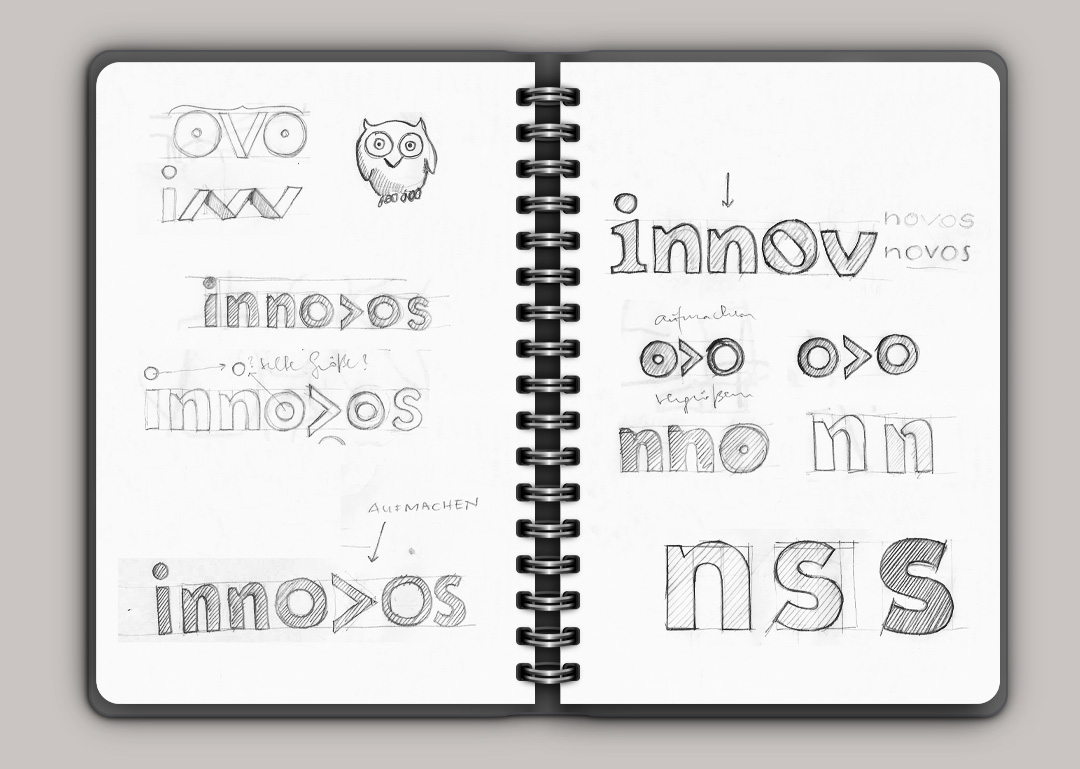 OVO
inno>os
? selbe Größe?
inno>os
AUFMACHEN
inno>os
innov
novos
novos
aufmachen
o>o
o>o
vergrößern
nno
nn
ns
s